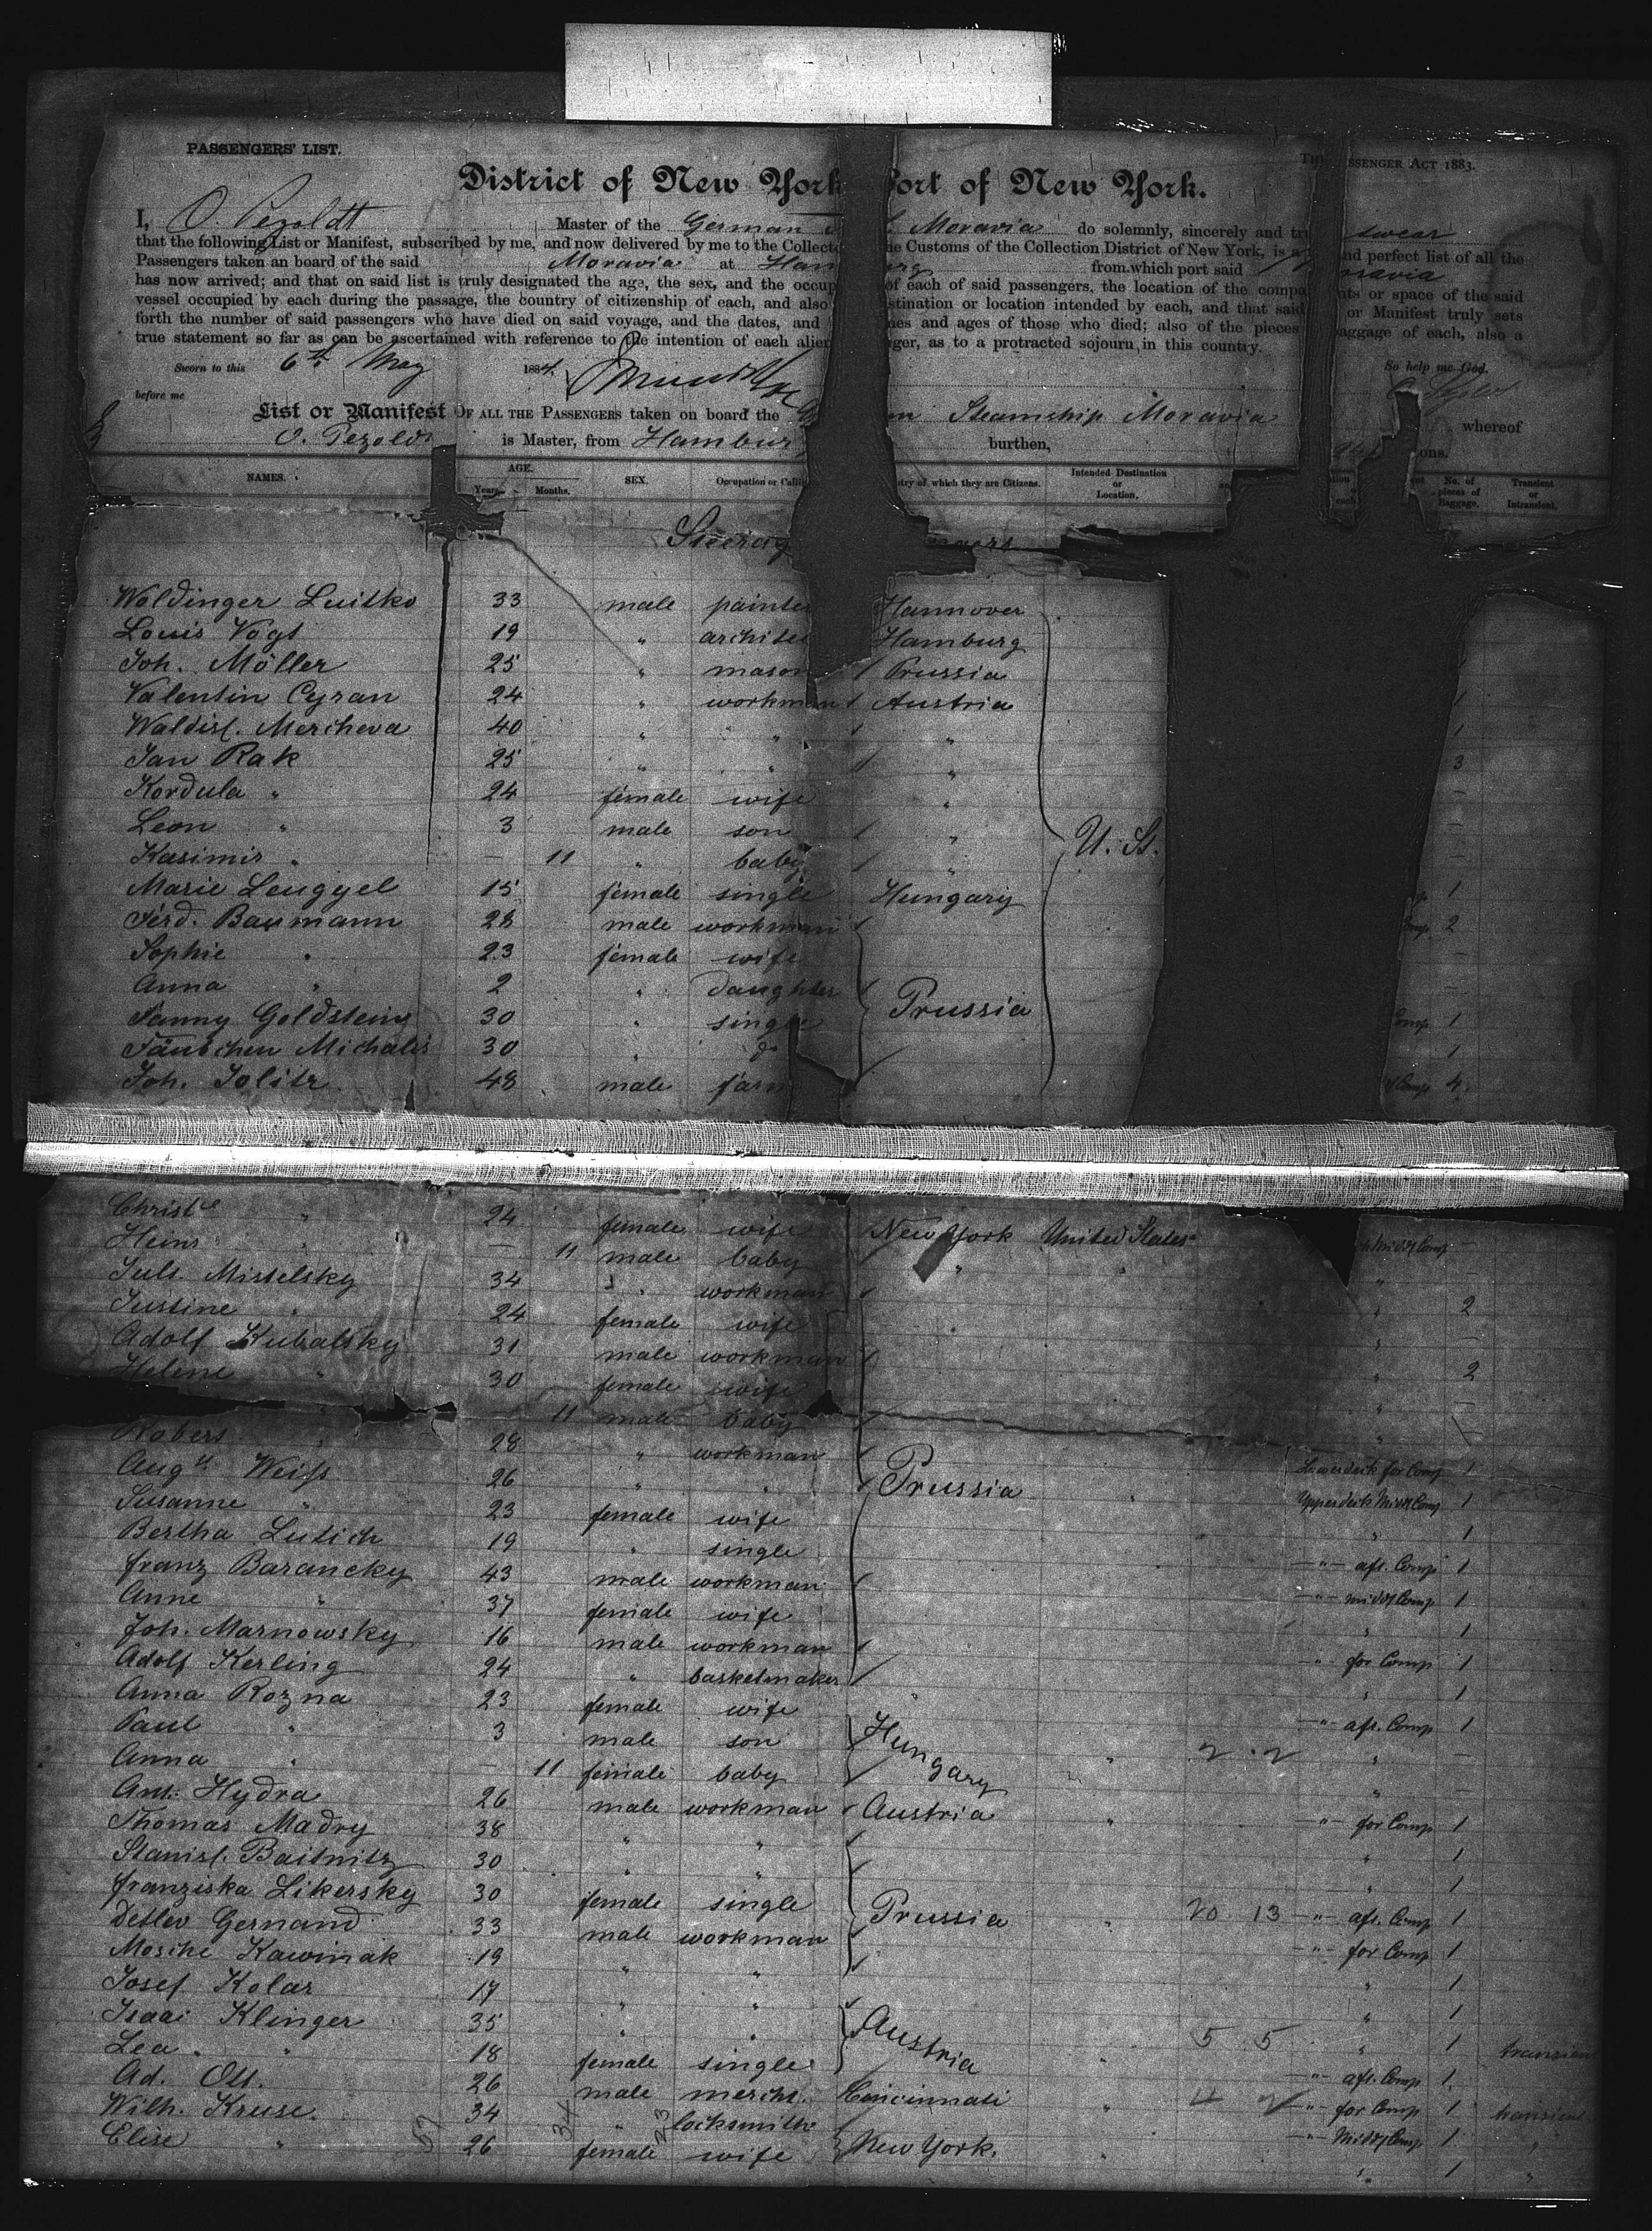 PASSENGERS' LIST.
PASSENGER ACT 1883.
District of New York Port of New York.
I, O. Pezoldt Master of the German Moravia do solemnly, sincerely and swear
that the following List or Manifest, subscribed by me, and now delivered by me to the Customs of the Collection District of New York, is a and perfect list of all the
Passengers taken an board of the said Moravia at Hamburg from which port said Moravia
has now arrived; and that on said list is truly designated the age, the sex, and the of each of said passengers, the location of the or space of the said
vessel occupied by each during the passage, the country of citizenship of each, and also or location intended by each, and that said or Manifest truly sets
forth the number of said passengers who have died on said voyage, and the dates, and and ages of those who died; also of the pieces baggage of each, also a
true statement so far as can be ascertained with reference to the intention of each as to a protracted sojourn in this country.
Sworn to this 6th May 1884. So help me God.
before me
List or Manifest OF ALL THE PASSENGERS taken on board the Steamship Moravia
O. Pezoldt is Master, from Hamburg burthen, whereof tons.
NAMES. AGE. Years. Months. SEX. Occupation or of which they are Citizens. Intended Destination or Location. No. of pieces of Baggage. Transient or Intransient.
Steerage
Woldinger Luitko 33 male Hannover
Louis Vogt 19 " Hamburg
Joh. Möller 25 " mason Prussia
Valentin Cyran 24 " workman Austria 1
Waldisl. Mercheva 40 " " " 1
Jan Rak 25 " " " 3
Kordula " 24 female wife " -
Leon " 3 male son " -
Kasimir " - 11 " baby " U. St. -
Marie Lengyel 15 female single Hungary 1
Ferd. Baumann 28 male workman 2
Sophie " 23 female wife -
Anna " 2 " daughter Prussia -
Fanny Goldstein 30 " single 1
Täubchen Michalis 30 " do 1
Joh. Jolitz 48 male 4
Christe " 24 female wife New York United States -
Heinr " - 11 male baby " " "
Juls. Misselsky 34 " workman " 2
Justine " 24 female wife " -
Adolf Kubalsky 31 male workman " 2
Helene " 30 female wife " -
" - 11 male baby "
Robert 28 " workman Lowerdeck for Comp 1
Augu Weiss 26 " " Prussia " Upperdeck Midd Comp 1
Susanne " 23 female wife " 1
Bertha Lutich 19 " single -"- aft. Comp 1
Franz Barancky 43 male workman -"- midd Comp 1
Anne " 37 female wife " 1
Joh. Marnowsky 16 male workman -"- for Comp 1
Adolf Kerling 24 " basketmaker " 1
Anna Rozna 23 female wife -"- aft. Comp 1
Paul " 3 male son Hungary " 2 2 " -
Anna " - 11 female baby " -
Ant. Hydra 26 male workman Austria " -"- for Comp 1
Thomas Madry 38 " " " 1
Stanisl. Baitnitz 30 " " " 1
Franziska Likersky 30 female single Prussia " 20 13 -"- aft. Comp 1
Detlev Gernand 33 male workman -"- for Comp 1
Mosche Kawiniak 19 " " " 1
Josef Kolar 17 " " " 1
Isaac Klinger 35 " " Austria 5 5 " 1
Lea " 18 female single " -"- aft. Comp 1
Ad. Ott. 26 male mercht. Cincinnati " 4 2 -"- for Comp 1
Wilh. Kruse 34 " locksmith -"- Midd Comp 1 "
Elise " 26 female wife New York. " " 1 "